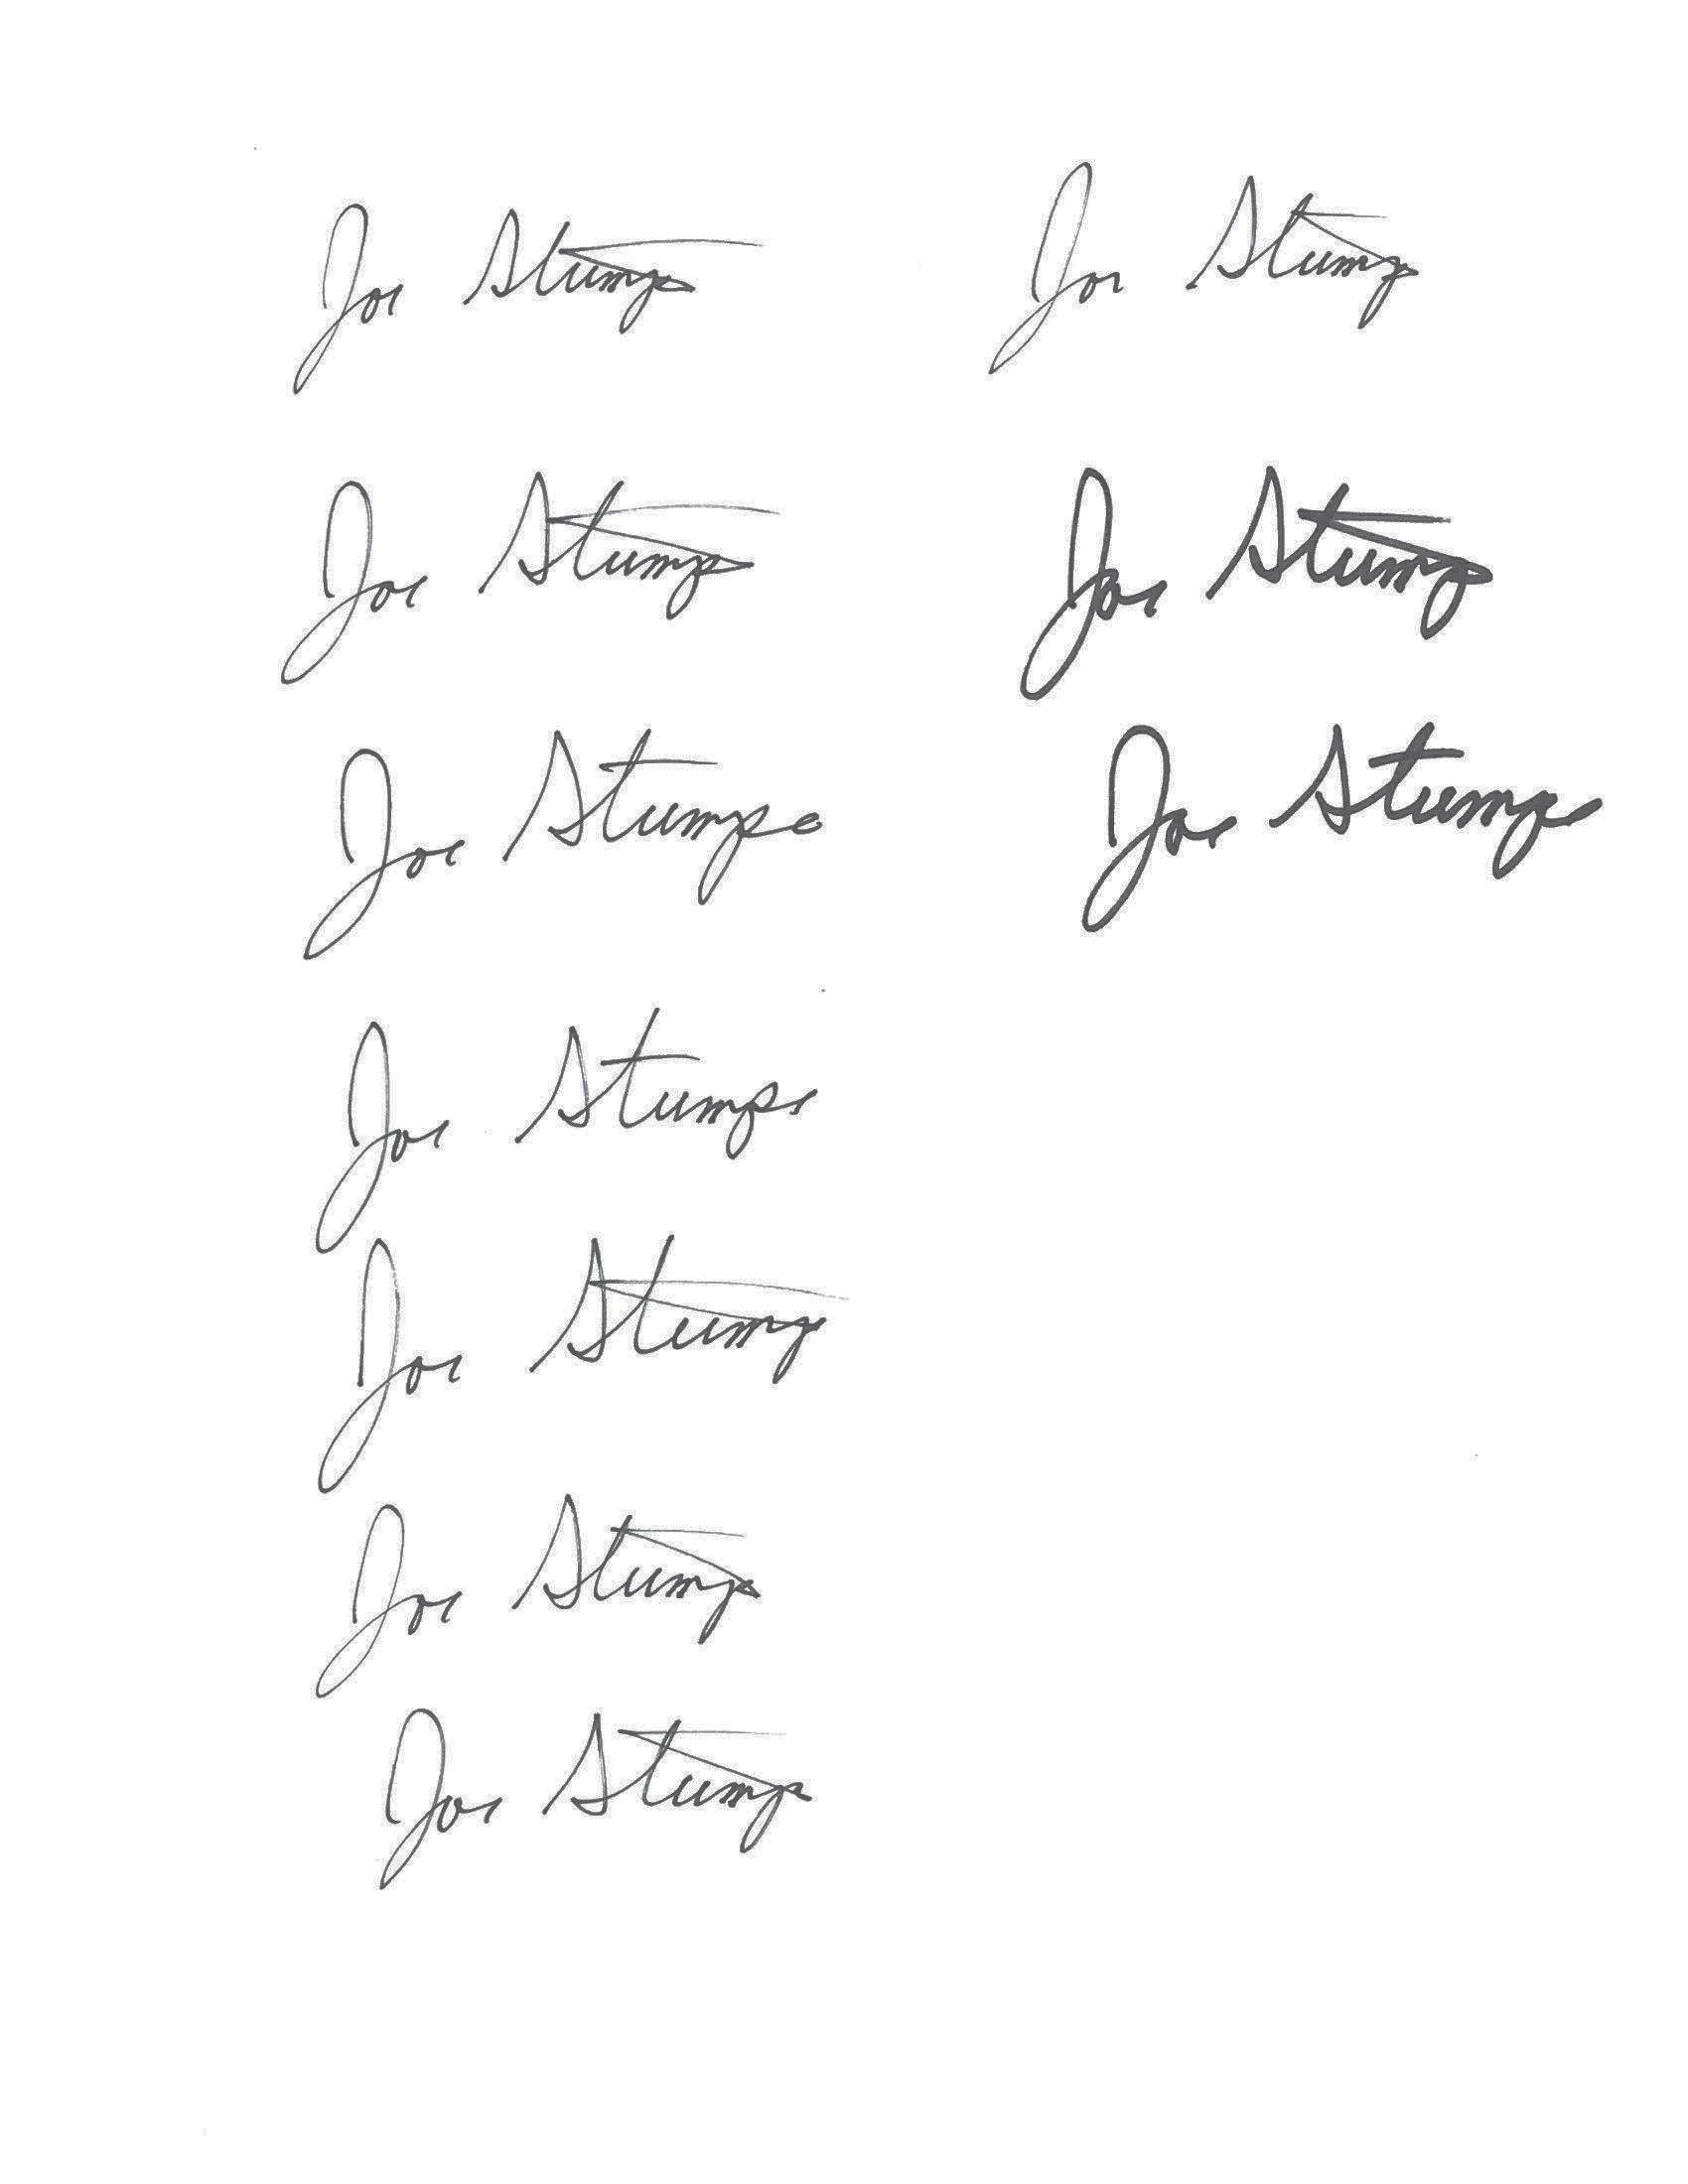 Joe Stumpe
Joe Stumpe
Joe Stumpe
Joe Stumpe
Joe Stumpe
Joe Stumpe
Joe Stumpe
Joe Stumpe
Joe Stumpe
Joe Stumpe